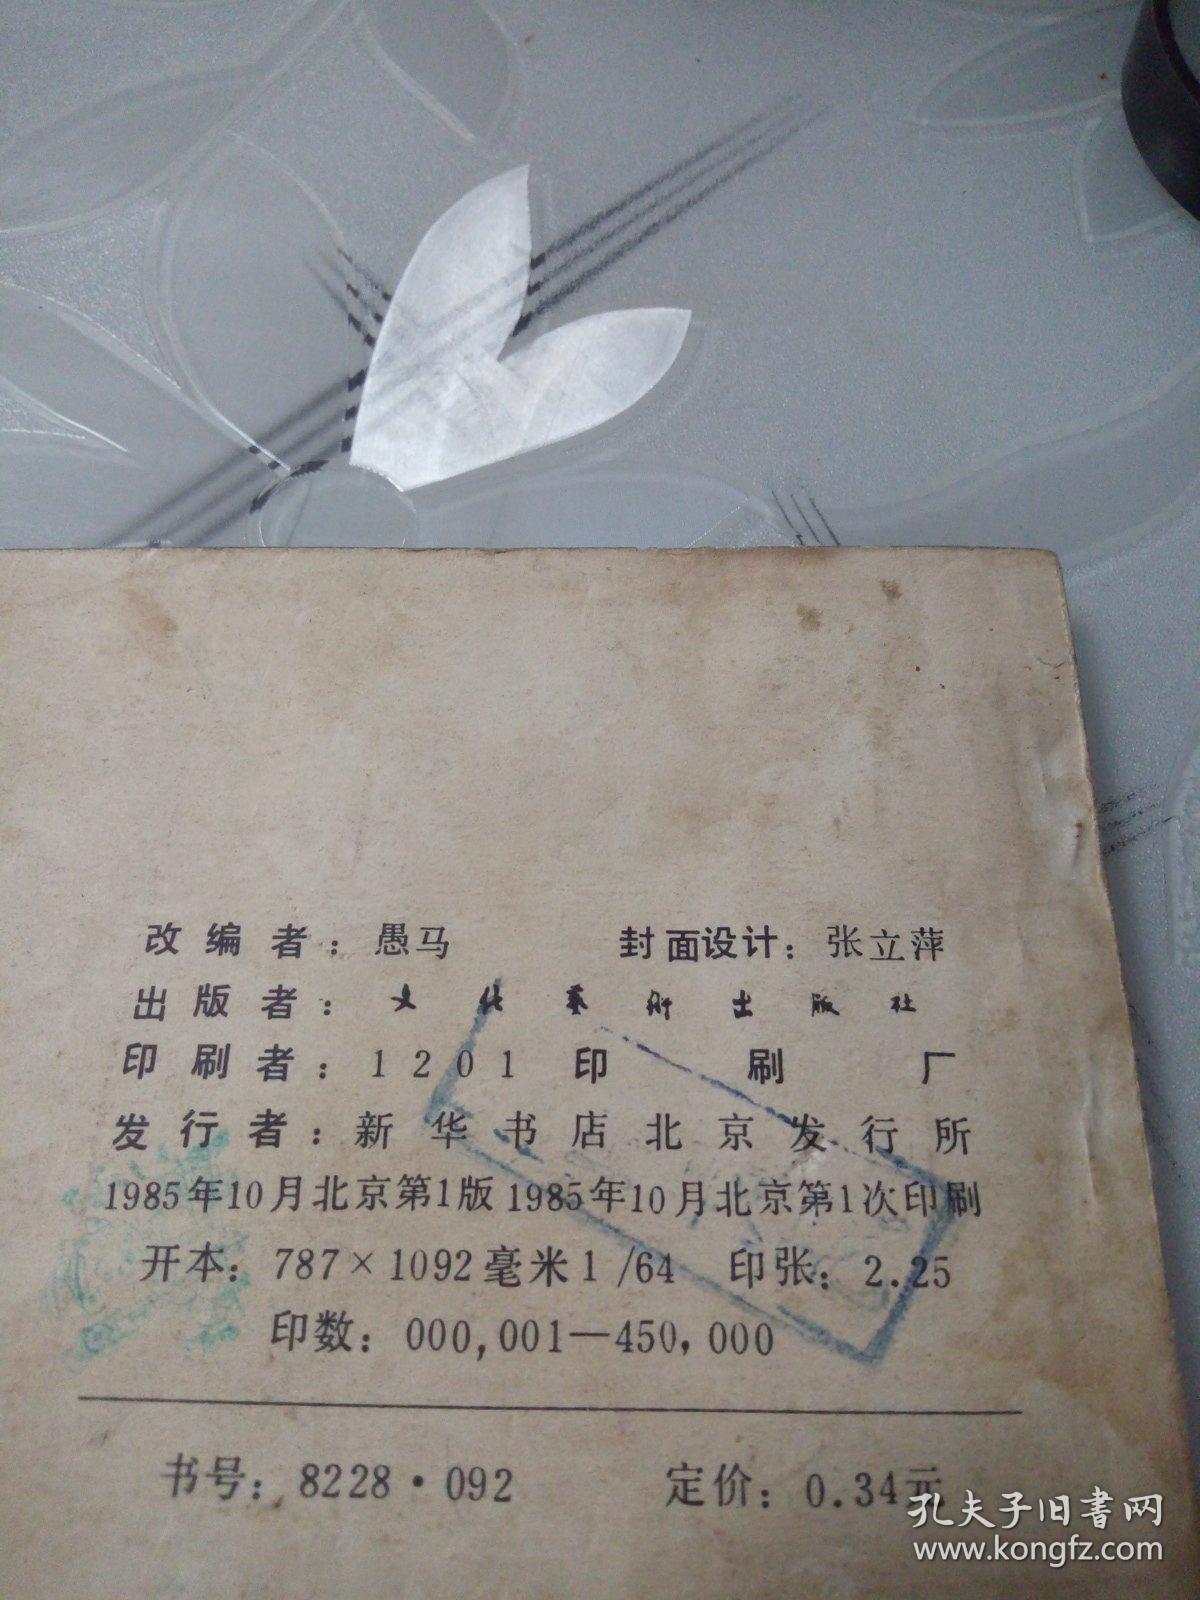 改编者：愚马　封面设计：张立萍
出版者：文化藝術出版社
印刷者：1201印刷厂
发行者：新华书店北京发行所
1985年10月北京第1版 1985年10月北京第1次印刷
开本：787×1092毫米1/64　印张：2.25
印数：000,001—450,000
书号：8228·092　定价：0.34元
孔夫子旧书网
www.kongfz.com